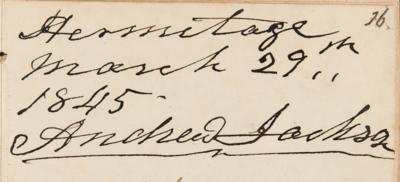 36.
Hermitage
March 29th
1845
Andrew Jackson